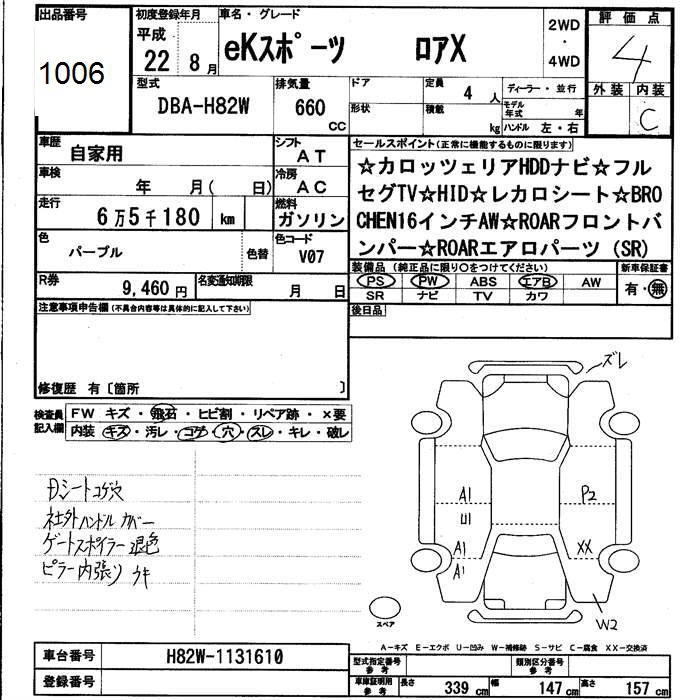 出品番号
1006
初度登録年月
平成
22 8月
車名・グレード
eKスポーツ ロアX
2WD
・
4WD
評価点
4
外装 内装
C
型式
DBA-H82W
排気量
660
CC
ドア
形状
定員
4 人
積載
kg
ディーラー・並行
モデル
年式 年
ハンドル 左・右
車歴
自家用
シフト
AT
車検
年 月( 日)
冷房
AC
走行
6万5千180 km
燃料
ガソリン
色
パープル
色替
色コード
V07
R券
9,460円
名変通知期限
月 日
セールスポイント(正常に機能するものに限ります)
☆カロッツェリアHDDナビ☆フル
セグTV☆HID☆レカロシート☆BRO
CHEN16インチAW☆ROARフロントバ
ンパー☆ROARエアロパーツ(SR)
装備品(純正品に限り○をつけてください)
PS PW ABS エアB AW
SR ナビ TV カワ
新車保証書
有・無
後日品
注意事項申告欄(不具合内容等は具体的に記入して下さい)
修復歴 有〔箇所 〕
検査員
記入欄
FW キズ・飛石・ヒビ割・リペア跡・×要
内装 キズ・汚レ・コゲ・穴・スレ・キレ・破レ
Dシートコゲ穴
社外ハンドルカバー
ゲートスポイラー退色
ピラー内張りウキ
ズレ
A1
U1
A1
A1
P2
XX
W2
スペア
A-キズ E-エクボ U-凹み W-補修跡 S-サビ C-腐食 XX-交換済
車台番号
H82W-1131610
登録番号
型式指定番号
参考
類別区分番号
参考
車庫証明用
参考
長さ 339cm
幅 147cm
高さ 157cm